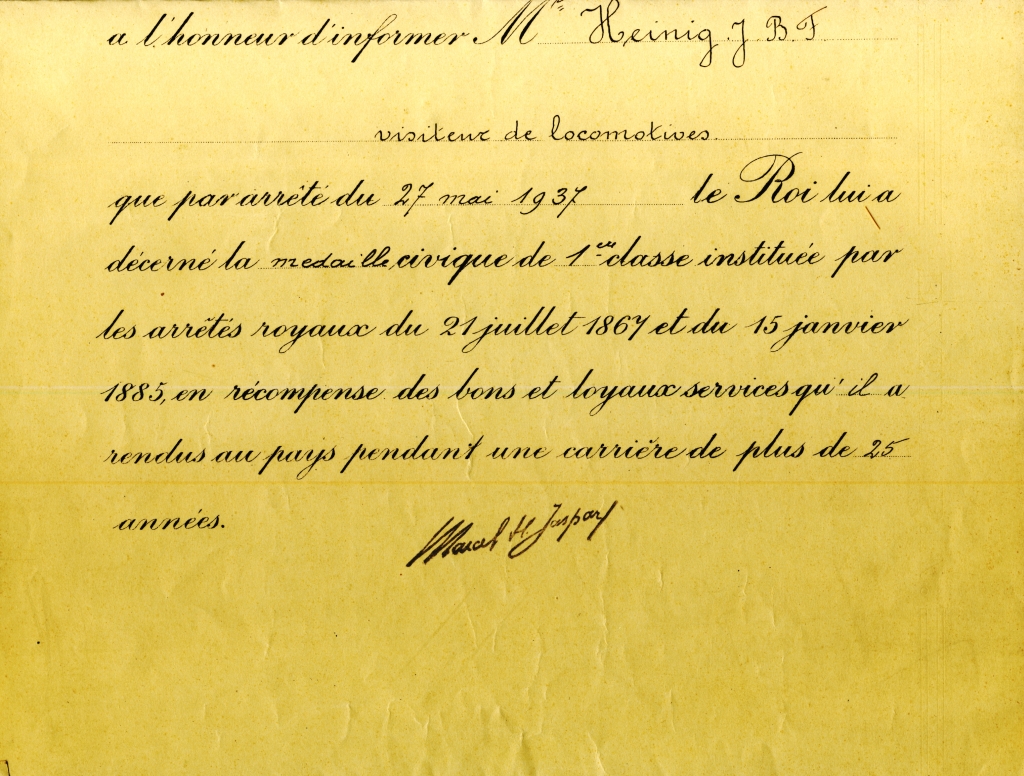 a l'honneur d'informer Mr Heinig. J B F
visiteur de locomotives.
que par arrêté du 27 mai 1937 le Roi lui a
décerné la medaille civique de 1ère classe instituée par
les arrêtés royaux du 21 juillet 1867 et du 15 janvier
1885, en récompense des bons et loyaux services qu'il a
rendus au pays pendant une carrière de plus de 25
années.
Marcel H. Jaspar